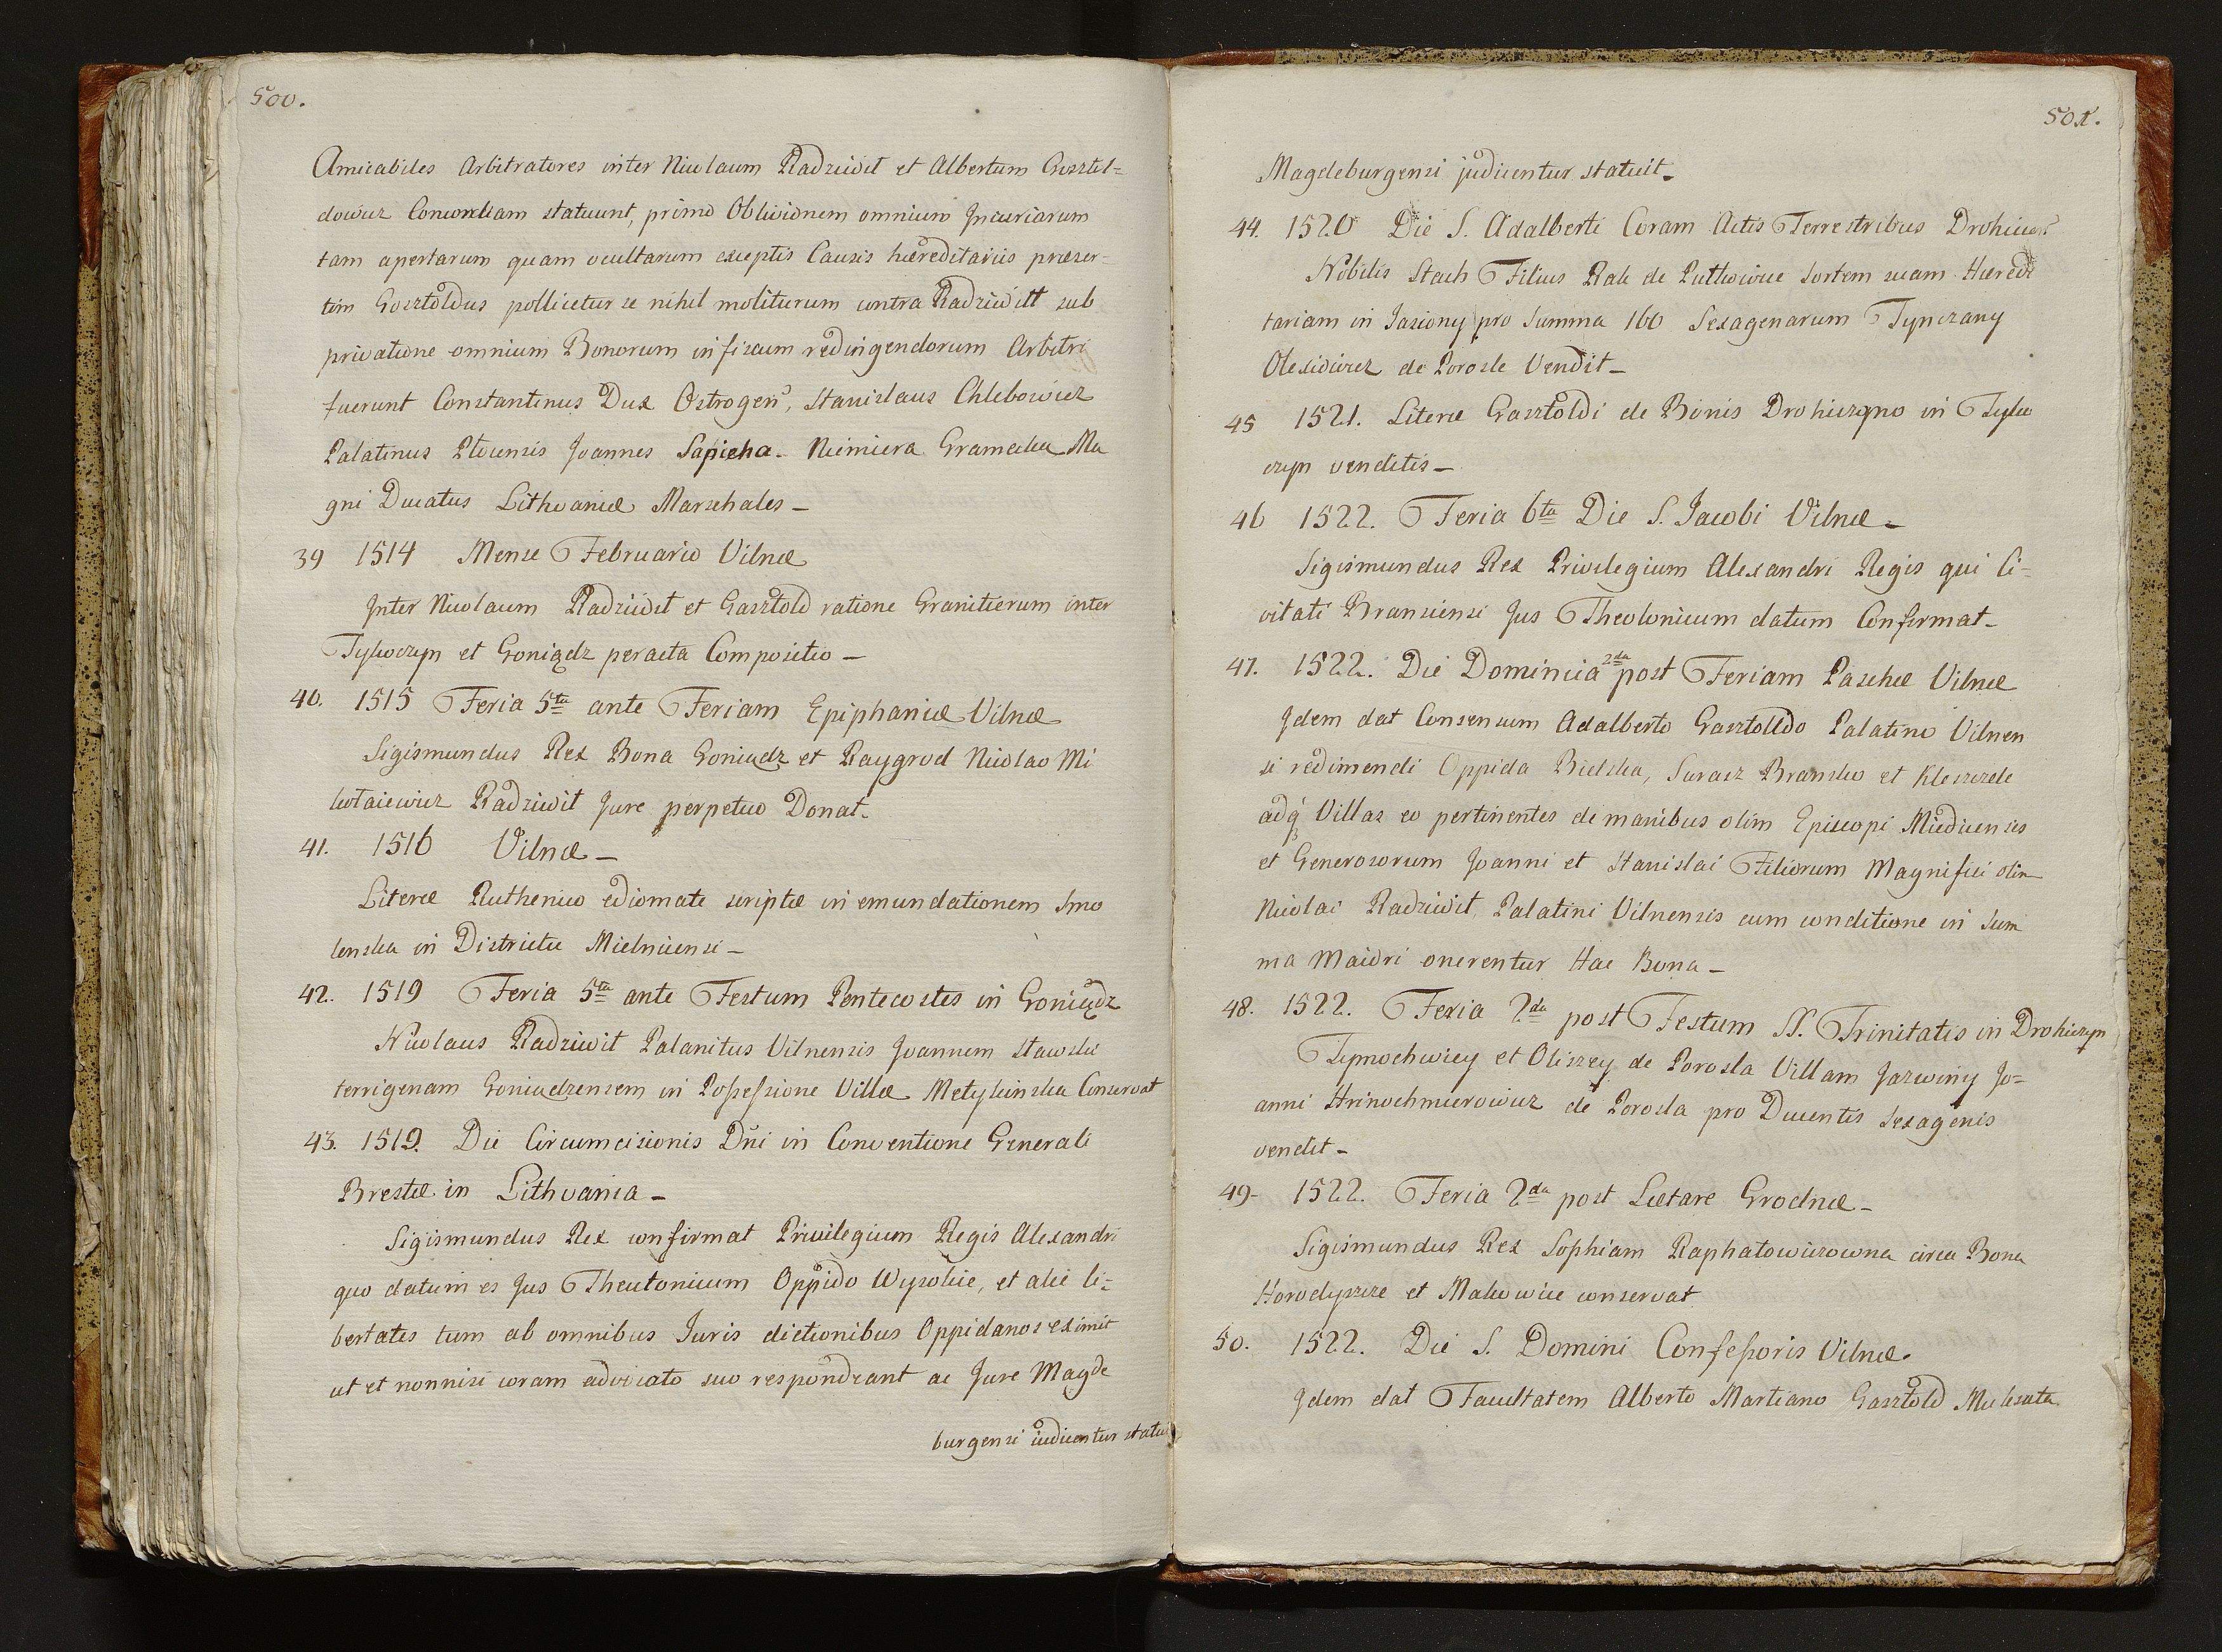 500.
Amicabiles Arbitratores inter Nicolaum Radziwił et Albertum Gosztol=
dowicz Concordiam statuunt, primo Oblivionem omnium Injuriarum
tam apertarum quam ocultarum exceptis Causis hæreditariis præser-
tim Gosztoldus pollicetur se nihil moliturum contra Radziwiłł sub
privatione omnium Bonorum in fiscum redingendorum Arbitri
fuerunt Constantinus Dux Ostrogen, Stanislaus Chlebowicz
Palatinus Plocensis Joannes Sapieha. Niemiera Ma
gni Ducatus Lithvaniæ Marschales –
39 1514 Mense Februario Vilnæ
Inter Nicolaum Radziwił et Gasztold ratione Granitierum inter
Tykoczyn et Goniądz peracta Compositio –
40. 1515 Feria 5ta ante Feriam Epiphaniæ Vilnæ
Sigismundus Rex Bona Goniądz et Raygrod Nicolao Mi
kołaiewicz Radziwił Jure perpetuo Donat.
41. 1516 Vilnæ –
Literæ Ruthenico ediomate scriptæ in emundationem Smo
lenska in Districtu Mielnicensi –
42. 1519 Feria 5ta ante Festum Pentecostes in Goniądz
Nicolaus Radziwił Palanitus Vilnensis Joannem Stawski
terrigenam Goniadzensem in Possessione Villæ Conservat
43. 1519. Die Circumcisionis Dñi in Conventione Generali
Brestæ in Lithvania –
Sigismundus Rex confirmat Privilegium Regis Alexandri
quo datum es Jus Theutonicum Oppido Wysokie, et alie li=
bertates tum ab omnibus Juris dictionibus Oppidanos eximit
ut et nonnisi coram advocato suo respondeant ac Jure Magde
burgensi iudicentur statu
501.
Magdeburgensi judicentur statuit –
44. 1520 Die S. Adalberti Coram Actis Terrestribus Drohicen
Nobilis Stach Filius Rak de Putkowice Sortem suam Hæredi
tariam in Jasiony pro Summa 160 Sexagenarum Tynczany
Olexiewicz de Porosle Vendit –
45 1521. Literæ Gasztoldi de Bonis Drohiczyno in Tyko
czyn venditis –
46 1522. Feria 6ta Die S. Jacobi Vilnæ –
Sigismundus Rex Privilegium Alexandri Regis qui Ci=
vitati Bransiensi Jus Theolonicum datum Confirmat –
47. 1522. Die Dominica 2da post Feriam Paschæ Vilnæ
Idem dat Consensum Adalberto Gasztolldo Palatino Vilnen
si redimendi Oppida Bielska, Suracz Bransko et Kleszczele
adq Villas eo pertinentes de manibus olim Episcopi Miedicensis
et Generosorum Joanni et Stanislai Filiorum Magnifici olim
Nicolai Radziwił, Palatini Vilnensis cum conditione in Sum
ma Maiori onerentur Hac Bona –
48. 1522. Feria 2da post Festum SS. Trinitatis in Drohiczyn
Tymochwiey et Oliszey de Porosla Villam Jazwiny Jo=
anni Hrinochmierowicz de Porosla pro Ducentis Sexagenis
vendit –
49- 1522. Feria 2da post Lætare Grodnæ –
Sigismundus Rex Sophiam Raphatowiczowna circa Bona
Horodyszcze et Makowice conservat
50. 1522. Die S. Domini Confessoris Vilnæ.
Idem dat Facultatem Alberto Martiano Gasztold